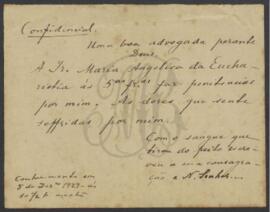 Confidencial.
Uma boa advogada perante
Deus.
A Ir. Maria Angelica da Eucha-
ristia às 5as f. faz penitencias
por mim. As dores que sente
soffridas por mim.
Com o sangue que
tirou do peito escre-
veu a sua consagra-
ção a N. Senhor...
em
5 de Dez.º 1929 - ás